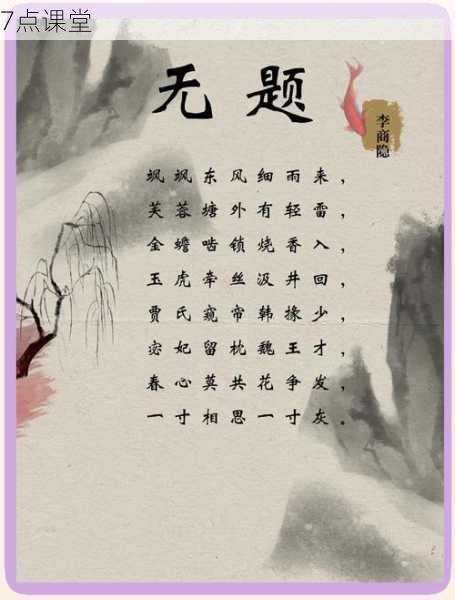 7点课堂
无题
李商隐
飒飒东风细雨来，
芙蓉塘外有轻雷，
金蟾啮锁烧香入，
玉虎牵丝汲井回，
贾氏窥帘韩掾少，
宓妃留枕魏王才，
春心莫共花争发，
一寸相思一寸灰。